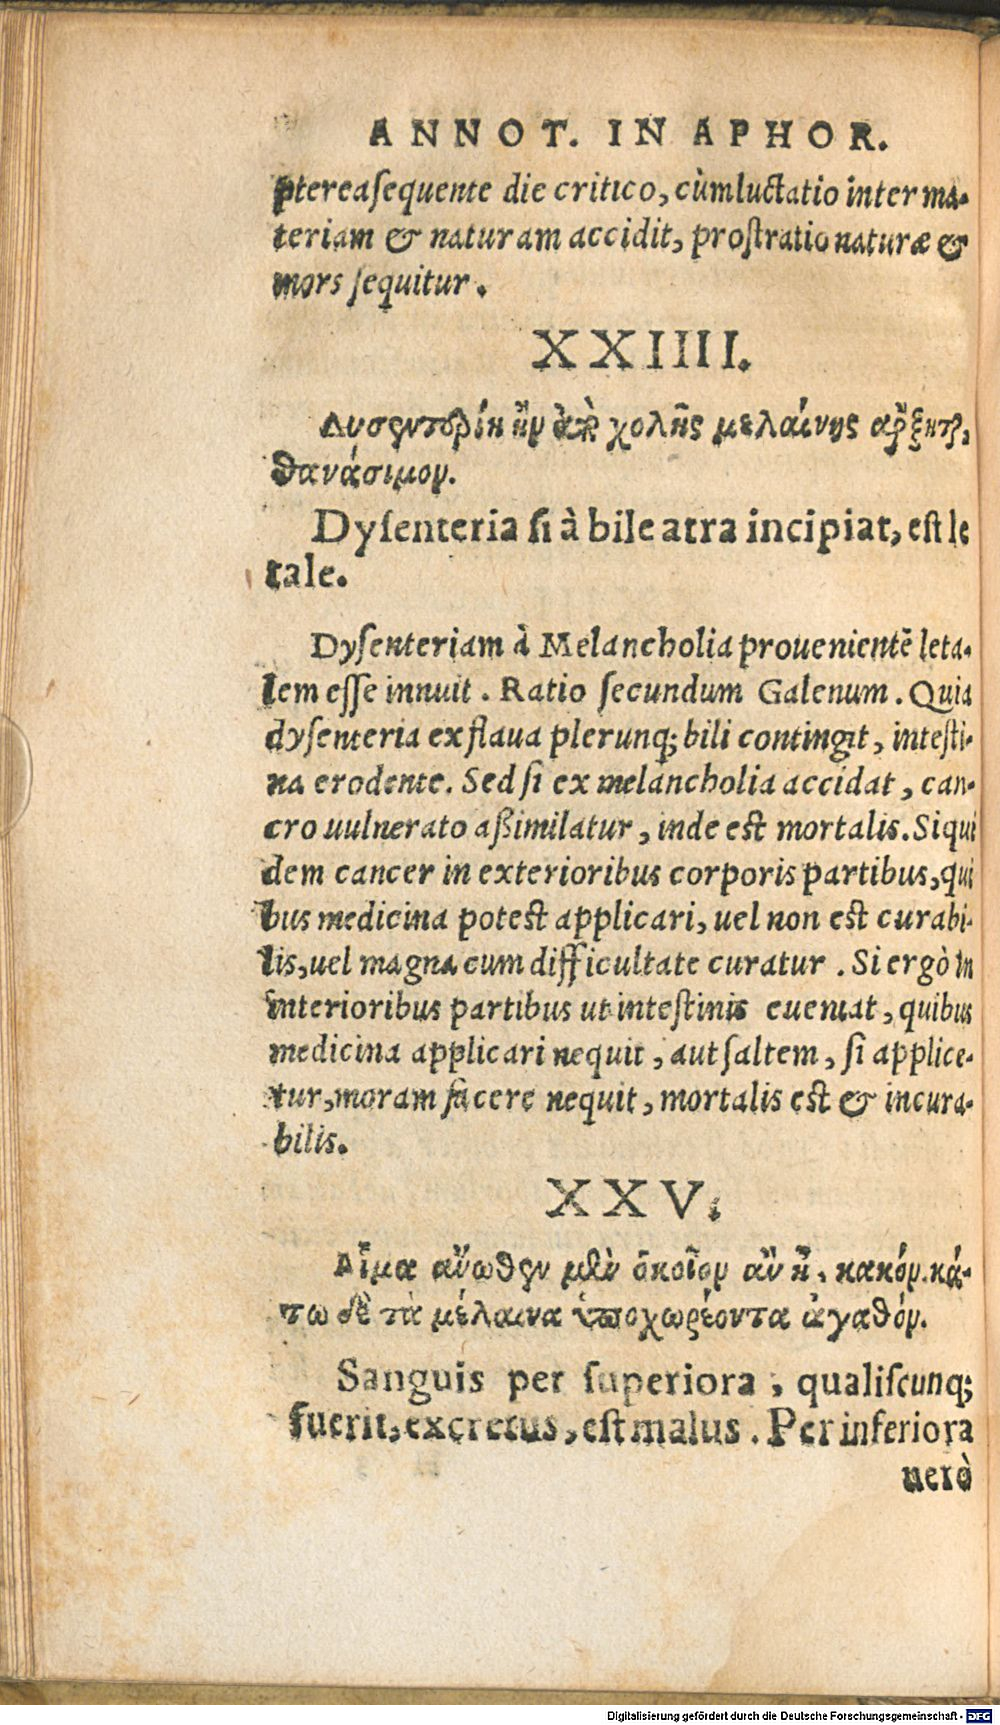 ANNOT. IN APHOR.
ptereasequente die critico, cùmluctatio inter ma-
teriam & naturam accidit, prostratio naturæ &
mors sequitur.
XXIIII.
Δυσεντερίη ἢν ἀπὸ χολῆς μελαίνης ἄρξηται,
θανάσιμον.
Dysenteria si à bile atra incipiat, est le
tale.
Dysenteriam à Melancholia prouenientē leta-
lem esse innuit. Ratio secundum Galenum. Quia
dysenteria ex flaua plerunq; bili contingit, intesti-
na erodente. Sed si ex melancholia accidat, can-
cro uulnerato aßimilatur, inde est mortalis. Siqui
dem cancer in exterioribus corporis partibus, qui
bus medicina potest applicari, uel non est curabi-
lis, uel magna cum difficultate curatur. Si ergò in
interioribus partibus ut intestinis eueniat, quibus
medicina applicari nequit, aut saltem, si applice-
tur, moram facere nequit, mortalis est & incura-
bilis.
XXV.
Αἷμα ἄνωθεν μὲν ὁκοῖον ἂν ᾖ, κακόν. κά-
τω δὲ τὰ μέλαινα ὑποχωρέοντα ἀγαθόν.
Sanguis per superiora, qualiscunq;
fuerit, excretus, est malus. Per inferiora
uerò
Digitalisierung gefördert durch die Deutsche Forschungsgemeinschaft - DFG